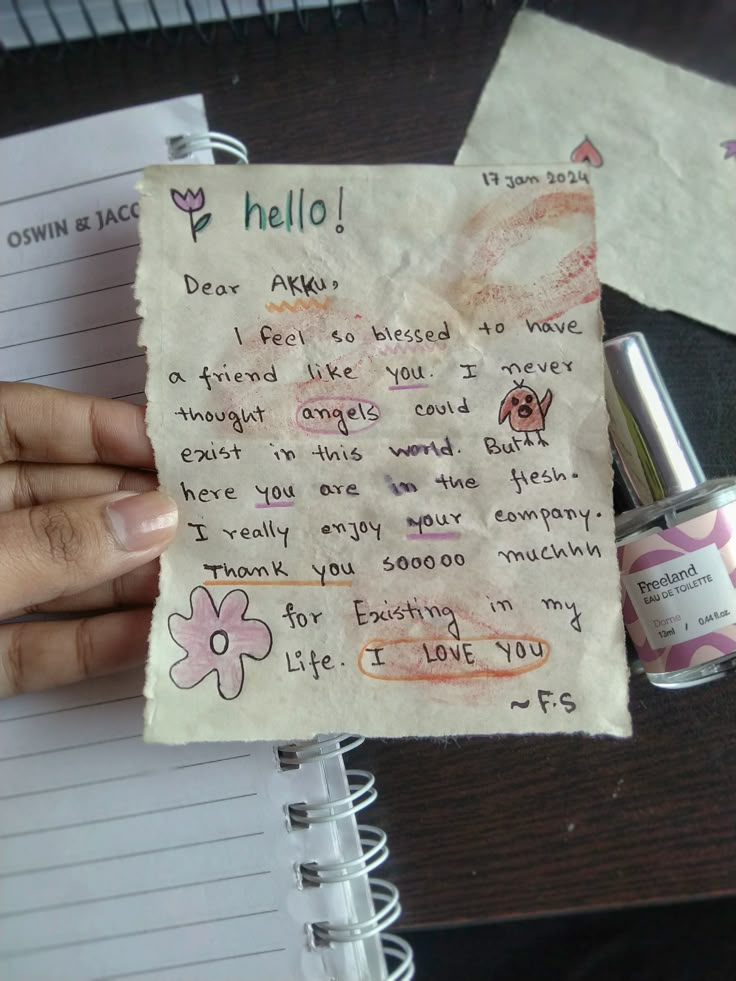 OSWIN & JACO
17 Jan 2024
hello!
Dear AKKU,
I feel so blessed to have
a friend like you. I never
thought angels could
exist in this world. But
here you are in the flesh.
I really enjoy your company.
Thank you sooooo muchhh
for Existing in my
Life. I LOVE YOU
~ F.S
Freeland
EAU DE TOILETTE
Dame
13ml / 0.44 fl.oz.